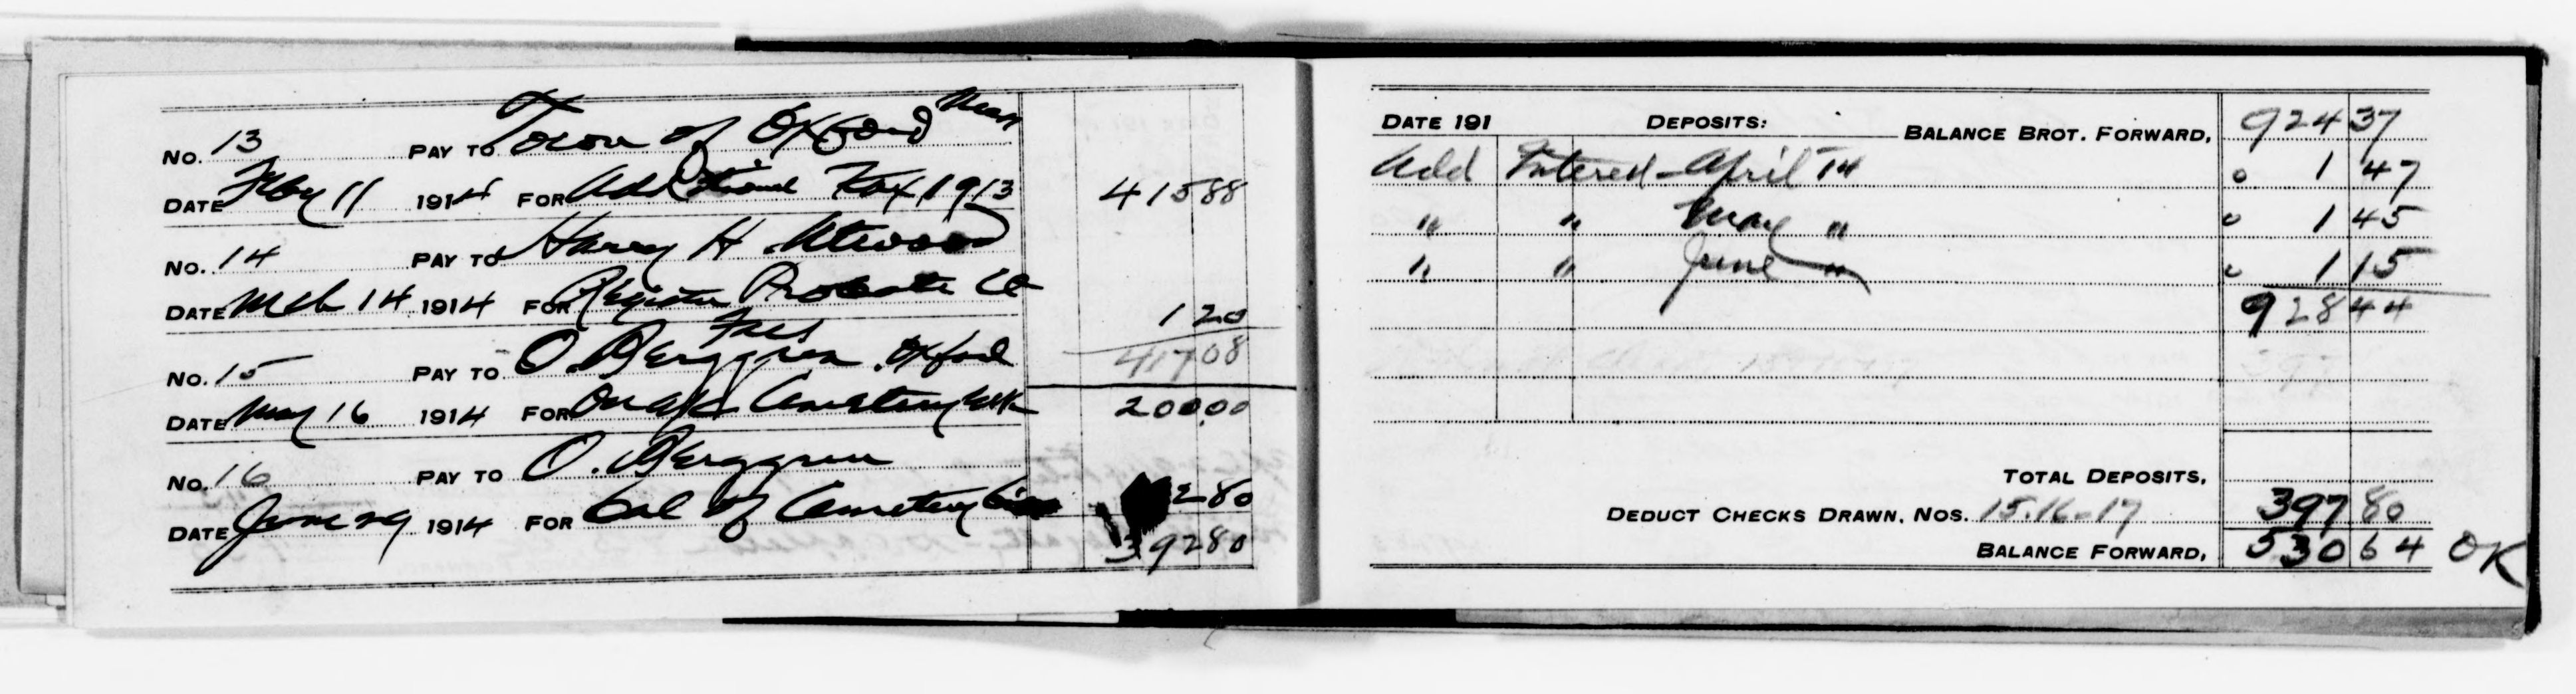 No. 13 PAY TO Town of Oxford Mass
DATE May 11 1914 FOR Additional Tax 1913 415 88
No. 14 PAY TO Harry H Atwood
DATE Mch 14 1914 FOR Register Probate Ct
Fees 1 20
417 08
No. 15 PAY TO O. Berggren Oxford
DATE May 16 1914 FOR on a/c Cemetery 200.00
No. 16 PAY TO O. Berggren
DATE June 29 1914 FOR Bal of Cemetery 2 80
392 80
DATE 191 DEPOSITS: BALANCE BROT. FORWARD, 924 37
Add Interest - April 14 1 47
" " May " 1 45
" " June " 1 15
928 44
TOTAL DEPOSITS,
DEDUCT CHECKS DRAWN, NOS. 15.16-17 397 80
BALANCE FORWARD, 530 64 OK